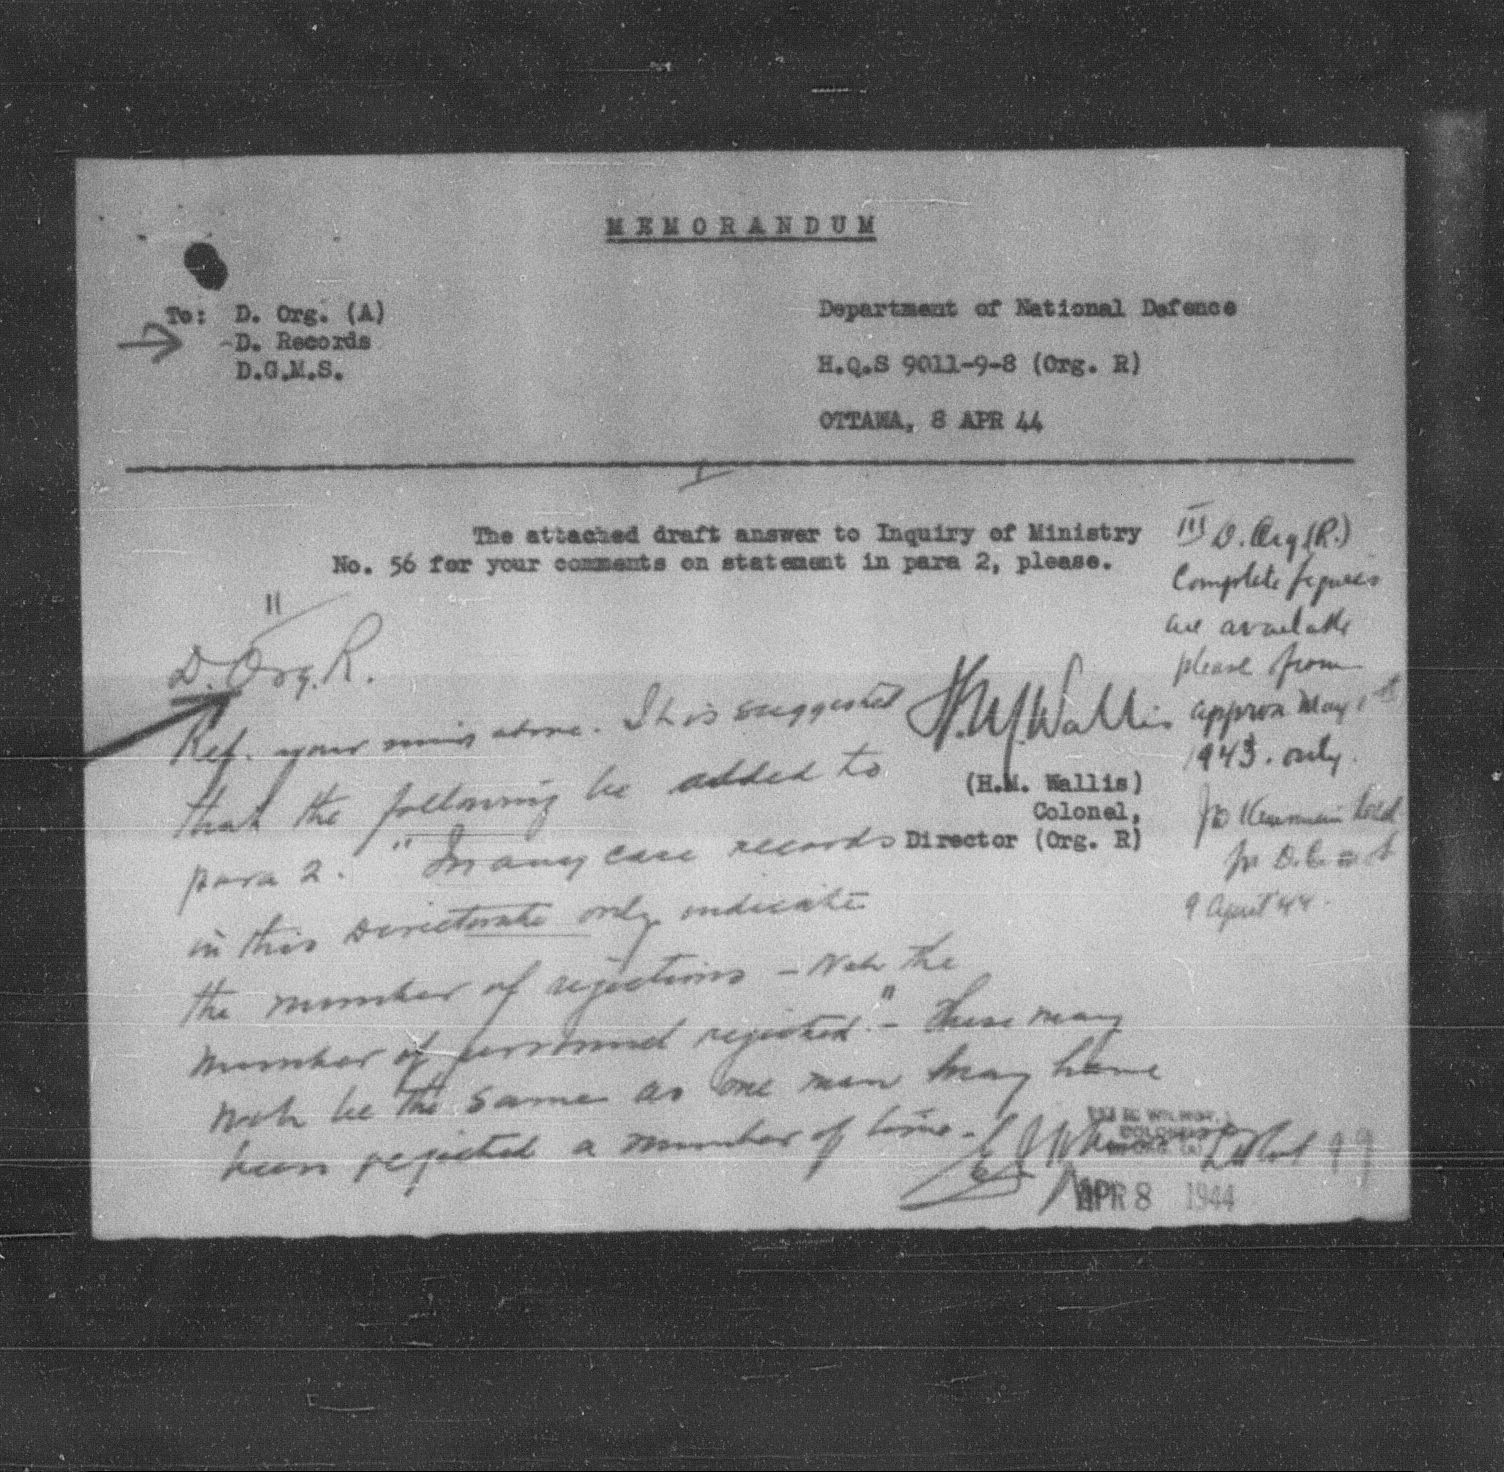 MEMORANDUM
To: D. Org. (A)
-D. Records
D.G.M.S.
Department of National Defence
H.Q.S 9011-9-8 (Org. R)
OTTAWA, 8 APR 44
I
The attached draft answer to Inquiry of Ministry
No. 56 for your comments on statement in para 2, please.
H.M. Wallis
(H.M. Wallis)
Colonel,
Director (Org. R)
II
D. Org. R.
Ref. your min above. It is suggested
that the following be added to
para 2. "In any case records
in this Directorate only indicate
the number of rejections - not the
number of personnel rejected." - These may
not be the same as one man may have
been rejected a number of times.
APR 8 1944
III D. Org (R.)
Complete figures
are available
please from
approx May 1st
1943. only.
9 April 44.